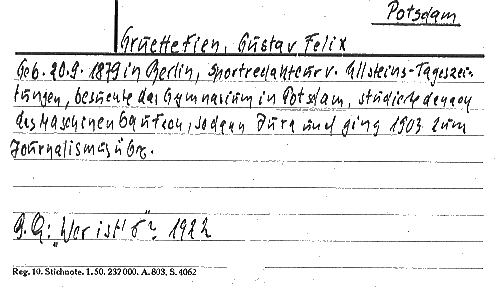 Potsdam
Gruettefien, Gustav Felix
Geb. 20.9. 1879 in Berlin, Sportredakteur v. Ullsteins-Tageszei-
tungen, besuchte das Gymnasium in Potsdam, studierte danach
das Maschinenbaufach, sodann Jura und ging 1903 zum
Journalismus über.
B.Q: „Wer ist's“? 1922
Reg. 10. Stichnote. 1. 50. 232000. A. 803. S. 4062